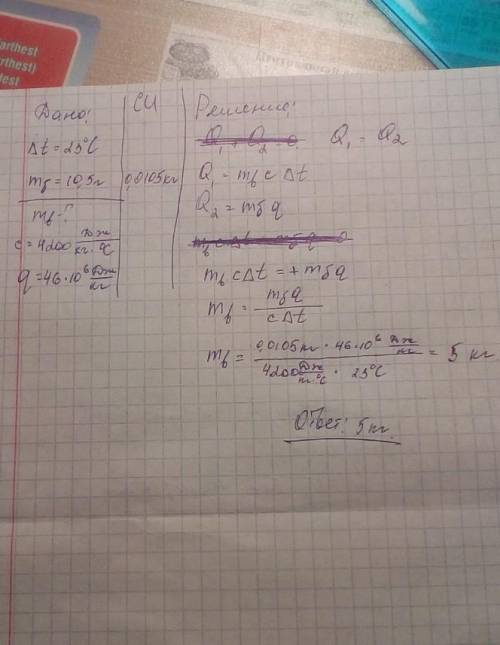 arthest
arthest)
lest
Дано:
Δt = 23°C
mб = 10,5г
mв - ?
c = 4200 Дж/кг·°C
q = 46·10⁶ Дж/кг
СИ
0,0105кг
Решение:
Q₁ + Q₂ = 0 Q₁ = Q₂
Q₁ = mв c Δt
Q₂ = mб q
mв cΔt = + mб q
mв = mб q / c Δt
mв = 0,0105кг · 46·10⁶ Дж/кг / 4200 Дж/кг·°C · 23°C = 5 кг
Ответ: 5кг.